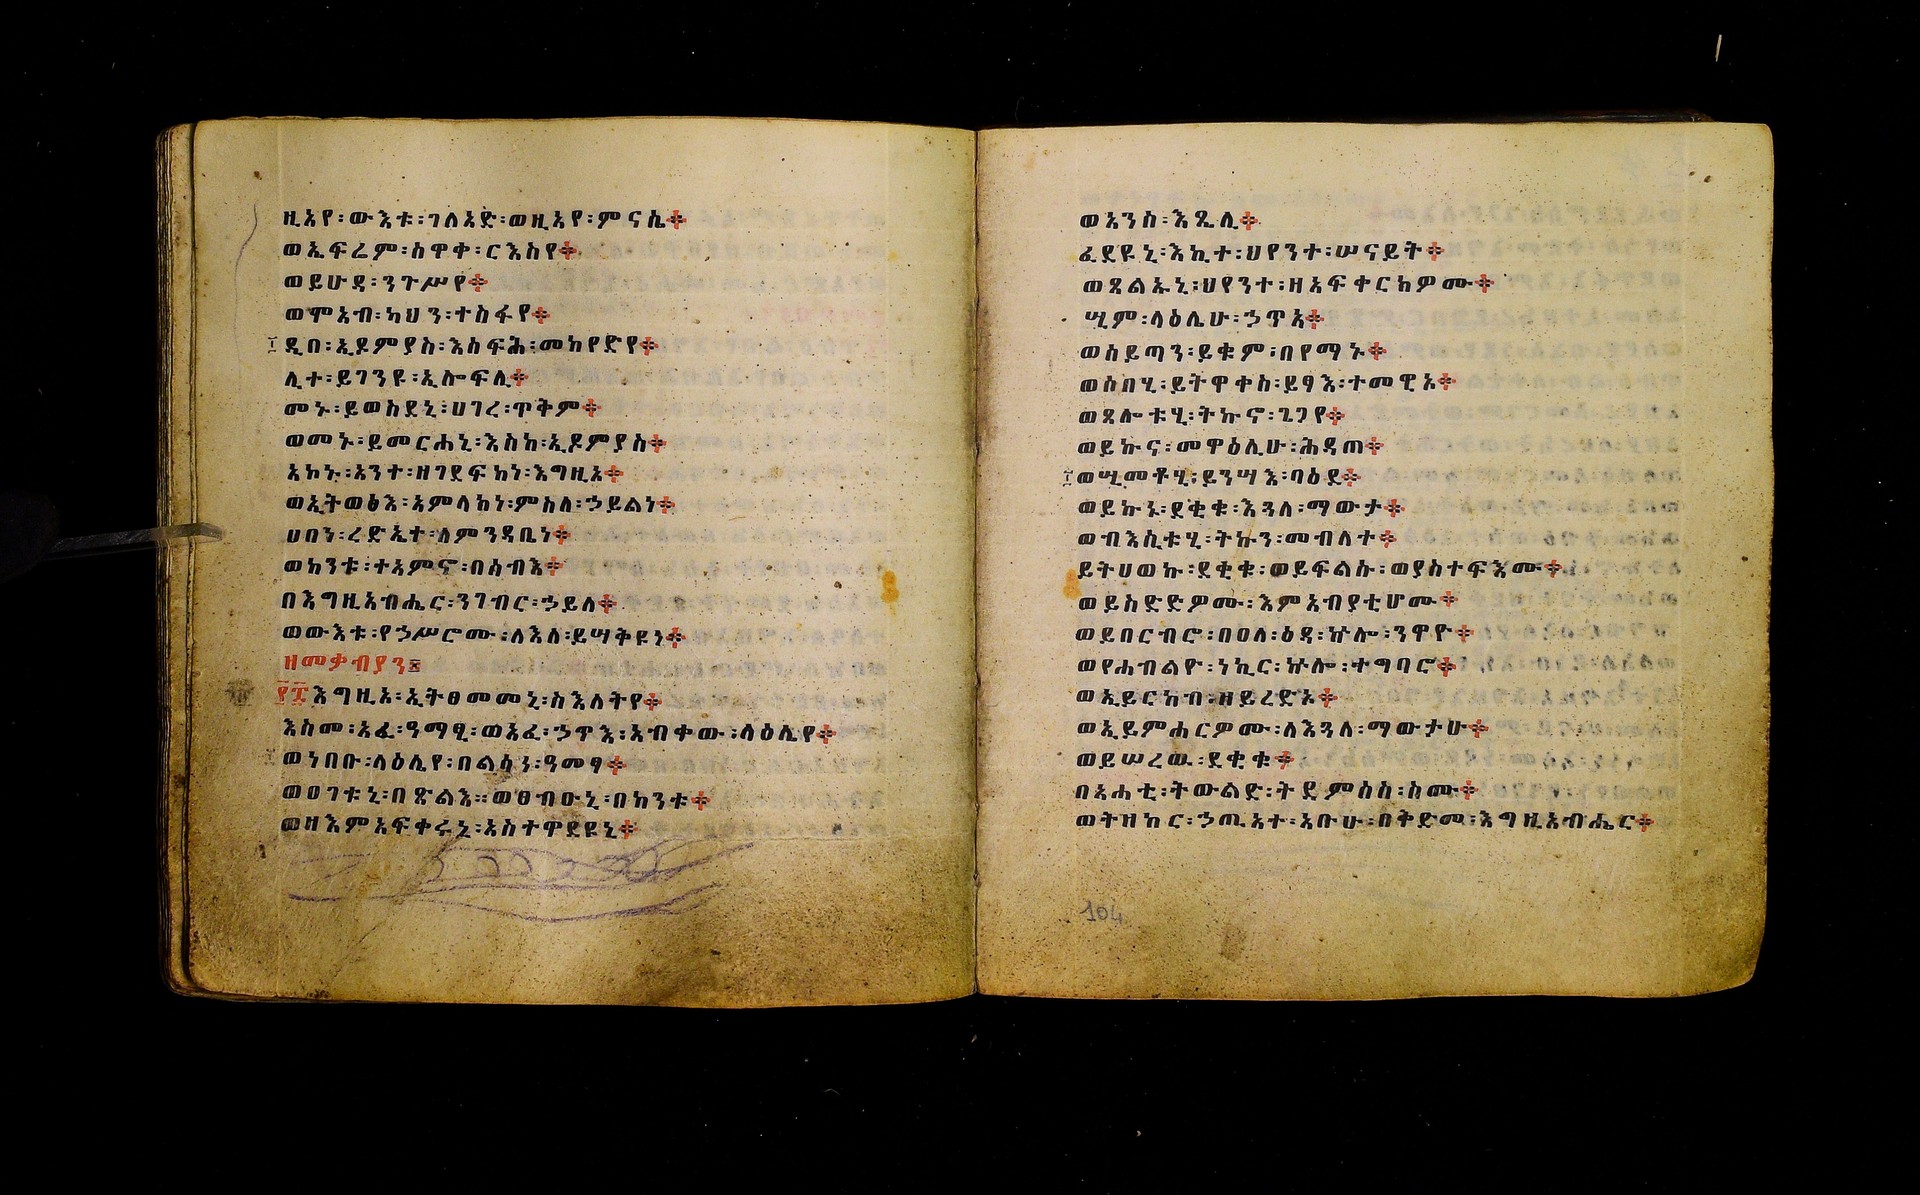 ዚአየ፡ውእቱ፡ገለአድ፡ወዚአየ፡ምናሴ፨
ወኤፍሬም፡ስዋቀ፡ርእስየ፨
ወይሁዳ፡ንጉሥየ፨
ወሞአብ፡ካህን፡ተስፋየ፨
ዲበ፡ኢዶምያስ፡እሰፍሕ፡መከየድየ፨
ሊተ፡ይገንዩ፡ኢሎፍሊ፨
መኑ፡ይወስደኒ፡ሀገረ፡ጥቅም፨
ወመኑ፡ይመርሐኒ፡እስከ፡ኢዶምያስ፨
አኮኑ፡አንተ፡ዘገደፍከነ፡እግዚአ፨
ወኢትወፅእ፡አምላከነ፡ምስለ፡ኃይልነ፨
ሀበነ፡ረድኤተ፡ለምንዳቤነ፨
ወከንቱ፡ተአምኖ፡በሰብእ፨
በእግዚአብሔር፡ንገብር፡ኃይለ፨
ወውእቱ፡የኃሥሮሙ፡ለእለ፡ይሣቅዩነ፨
ዘመቃብያን፠
፻፰እግዚአ፡ኢትፀመመኒ፡ስእለትየ፨
እስመ፡አፈ፡ዓማፂ፡ወአፈ፡ኃጥእ፡አብቀው፡ላዕሌየ፨
ወነበቡ፡ላዕሌየ፡በልሳነ፡ዓመፃ፨
ወዐገቱኒ፡በጽልእ፡፡ወፀብዑኒ፡በከንቱ፨
ወዘእምአፍቀሩኒ፡አስተዋደዩኒ፨
ወአንሰ፡እጼሊ፨
ፈደዩኒ፡እኪተ፡ህየንተ፡ሠናይት፨
ወጸልኡኒ፡ህየንተ፡ዘአፍቀርክዎሙ፨
ሢም፡ላዕሌሁ፡ኃጥአ፨
ወሰይጣን፡ይቁም፡በየማኑ፨
ወሶበሂ፡ይትዋቀስ፡ይፃእ፡ተመዊኦ፨
ወጸሎቱሂ፡ትኩኖ፡ጌጋየ፨
ወይኩና፡መዋዕሊሁ፡ሕዳጠ፨
ወሢመቶሂ፡ይንሣእ፡ባዕድ፨
ወይኩኑ፡ደቂቁ፡እጓለ፡ማውታ፨
ወብእሲቱሂ፡ትኩን፡መብለተ፨
ይትሀወኩ፡ደቂቁ፡ወይፍልሱ፡ወያስተፍእሙ፨
ወይስድድዎሙ፡እምአብያቲሆሙ፨
ወይበርብሮ፡በዐለ፡ዕዳ፡ኵሎ፡ንዋዮ፨
ወየሐብልዮ፡ነኪር፡ኵሎ፡ተግባሮ፨
ወኢይርከብ፡ዘይረድኦ፨
ወኢይምሐርዎሙ፡ለእጓለ፡ማውታሁ፨
ወይሠረዉ፡ደቂቁ፨
በአሐቲ፡ትውልድ፡ትደምሰስ፡ስሙ፨
ወትዘከር፡ኃጢአተ፡አቡሁ፡በቅድመ፡እግዚአብሔር፨
104